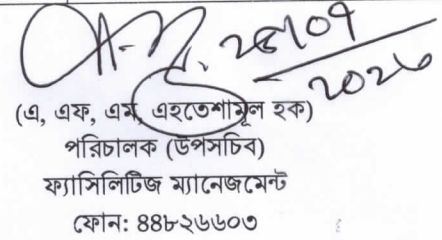 ২৮/০৭
২০২৬
(এ, এফ, এম, এহতেশামূল হক)
পরিচালক (উপসচিব)
ফ্যাসিলিটিজ ম্যানেজমেন্ট
ফোন: ৪৪৮২৬৬০৩